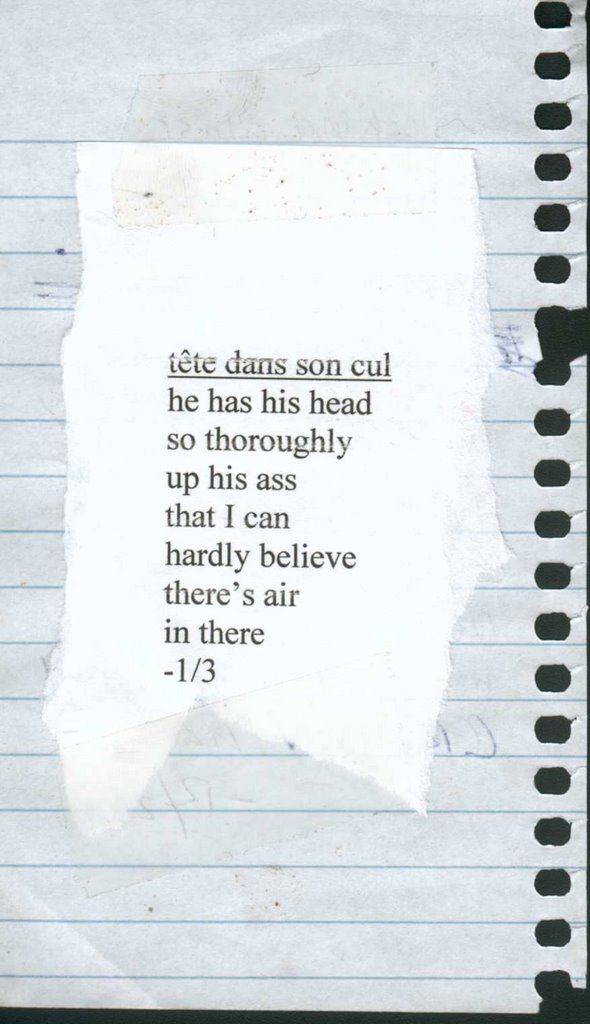 tête dans son cul
he has his head
so thoroughly
up his ass
that I can
hardly believe
there's air
in there
-1/3